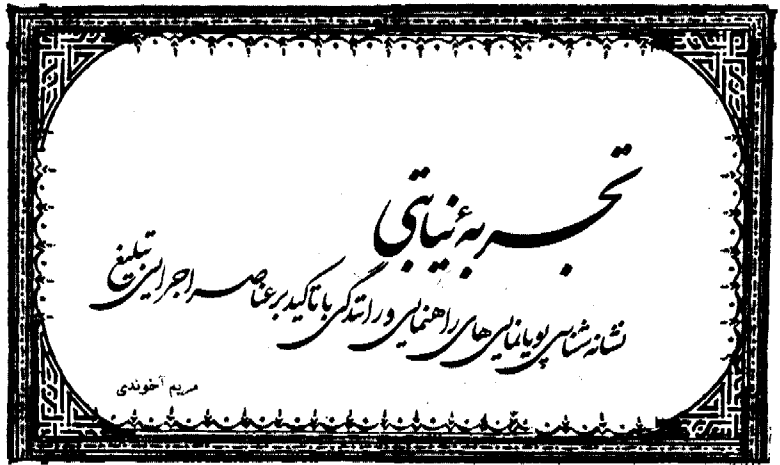 تجربهٔ نیابتی
نشانه‌شناسی پویانمایی‌های راهنمایی و رانندگی با تاکید بر عناصر اجرایی تبلیغ
مریم آخوندی